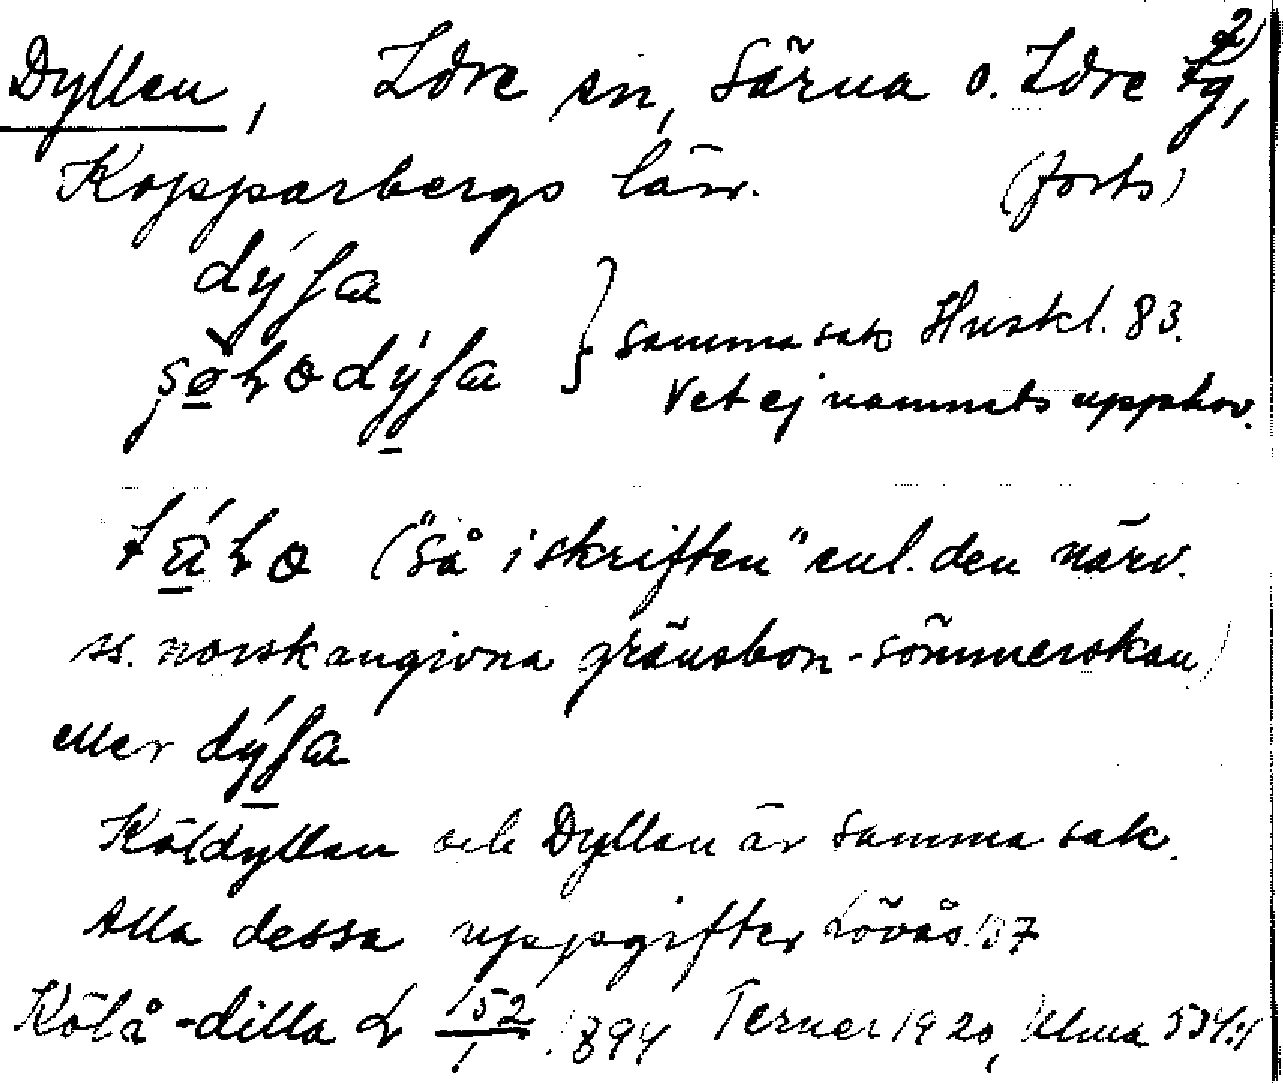 2)
Dyllen, Idre sn, Särna o. Idre tg,
Kopparbergs län. (forts)
dýla
dýla } samma sak Huskl. 83.
Vet ej namnets upphov.
("så i skriften" enl. den närv.
ss. norsk angivna gränsbon-sömmerskan)
eller dýla
Köldyllan och Dyllan är samma sak.
Alla dessa uppgifter Lövås 137
Kölå-dilla L 152/1 1894 Terner 1920, Ulma 534:4